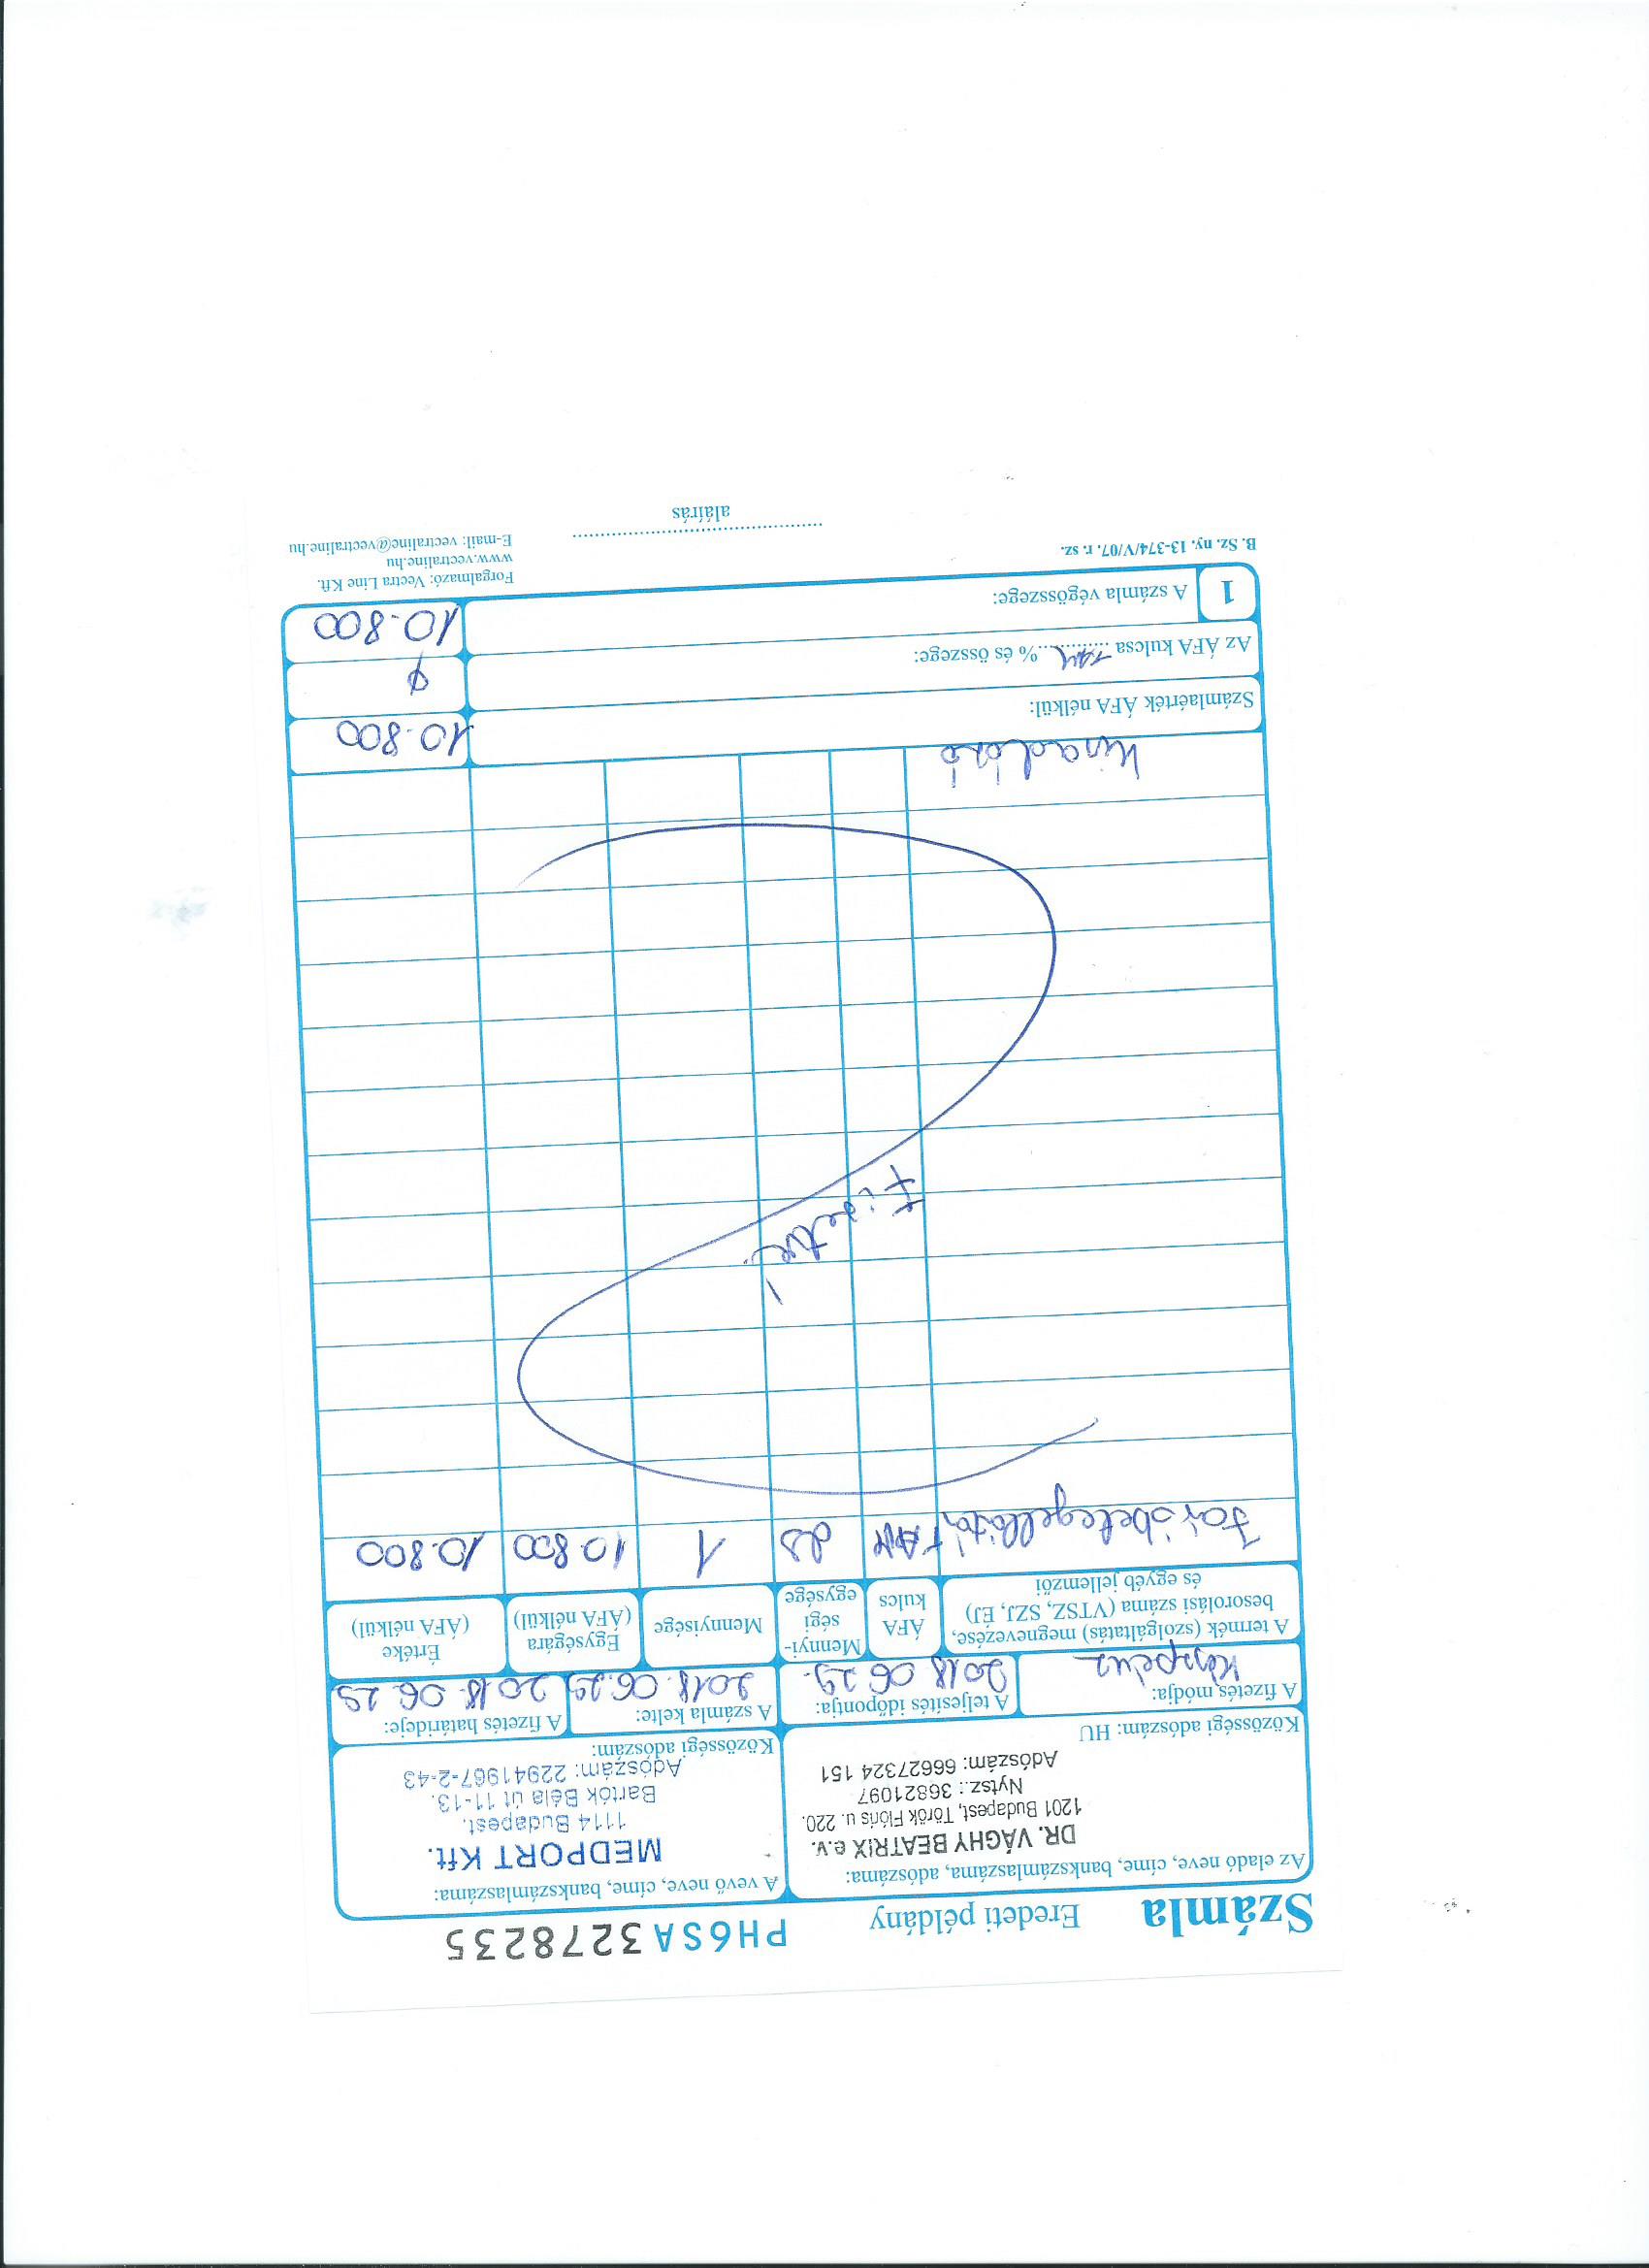 Számla Eredeti példány PH6SA 3278235
Az eladó neve, címe, bankszámlaszáma, adószáma:
DR. VÁGHY BEATRIX e.v.
1201 Budapest, Török Flóris u. 220.
Nytsz.: 36821097
Adószám: 66627324 151
Közösségi adószám: HU
A vevő neve, címe, bankszámlaszáma:
MEDPORT Kft.
1114 Budapest.
Bartók Béla út 11-13.
Adószám: 22941967-2-43
Közösségi adószám:
A fizetés módja:
Készpénz
A teljesítés időpontja:
2018 06 29.
A számla kelte:
2018. 06. 29
A fizetés határideje:
2018. 06. 29
A termék (szolgáltatás) megnevezése,
besorolási száma (VTSZ, SZJ, ÉJ)
és egyéb jellemzői
ÁFA
kulcs
Mennyi-
ségi
egysége
Mennyisége
Egységára
(ÁFA nélkül)
Értéke
(ÁFA nélkül)
Járóbetegellátás TAM db 1 10.800 10.800
Fizetve!
Számlaérték ÁFA nélkül: 10.800
Az ÁFA kulcsa TAM % és összege: ϕ
1 A számla végösszege: 10.800
B. Sz. ny. 13-374/V/07. r. sz.
aláírás
Forgalmazó: Vectra Line Kft.
www.vectraline.hu
E-mail: vectraline@vectraline.hu